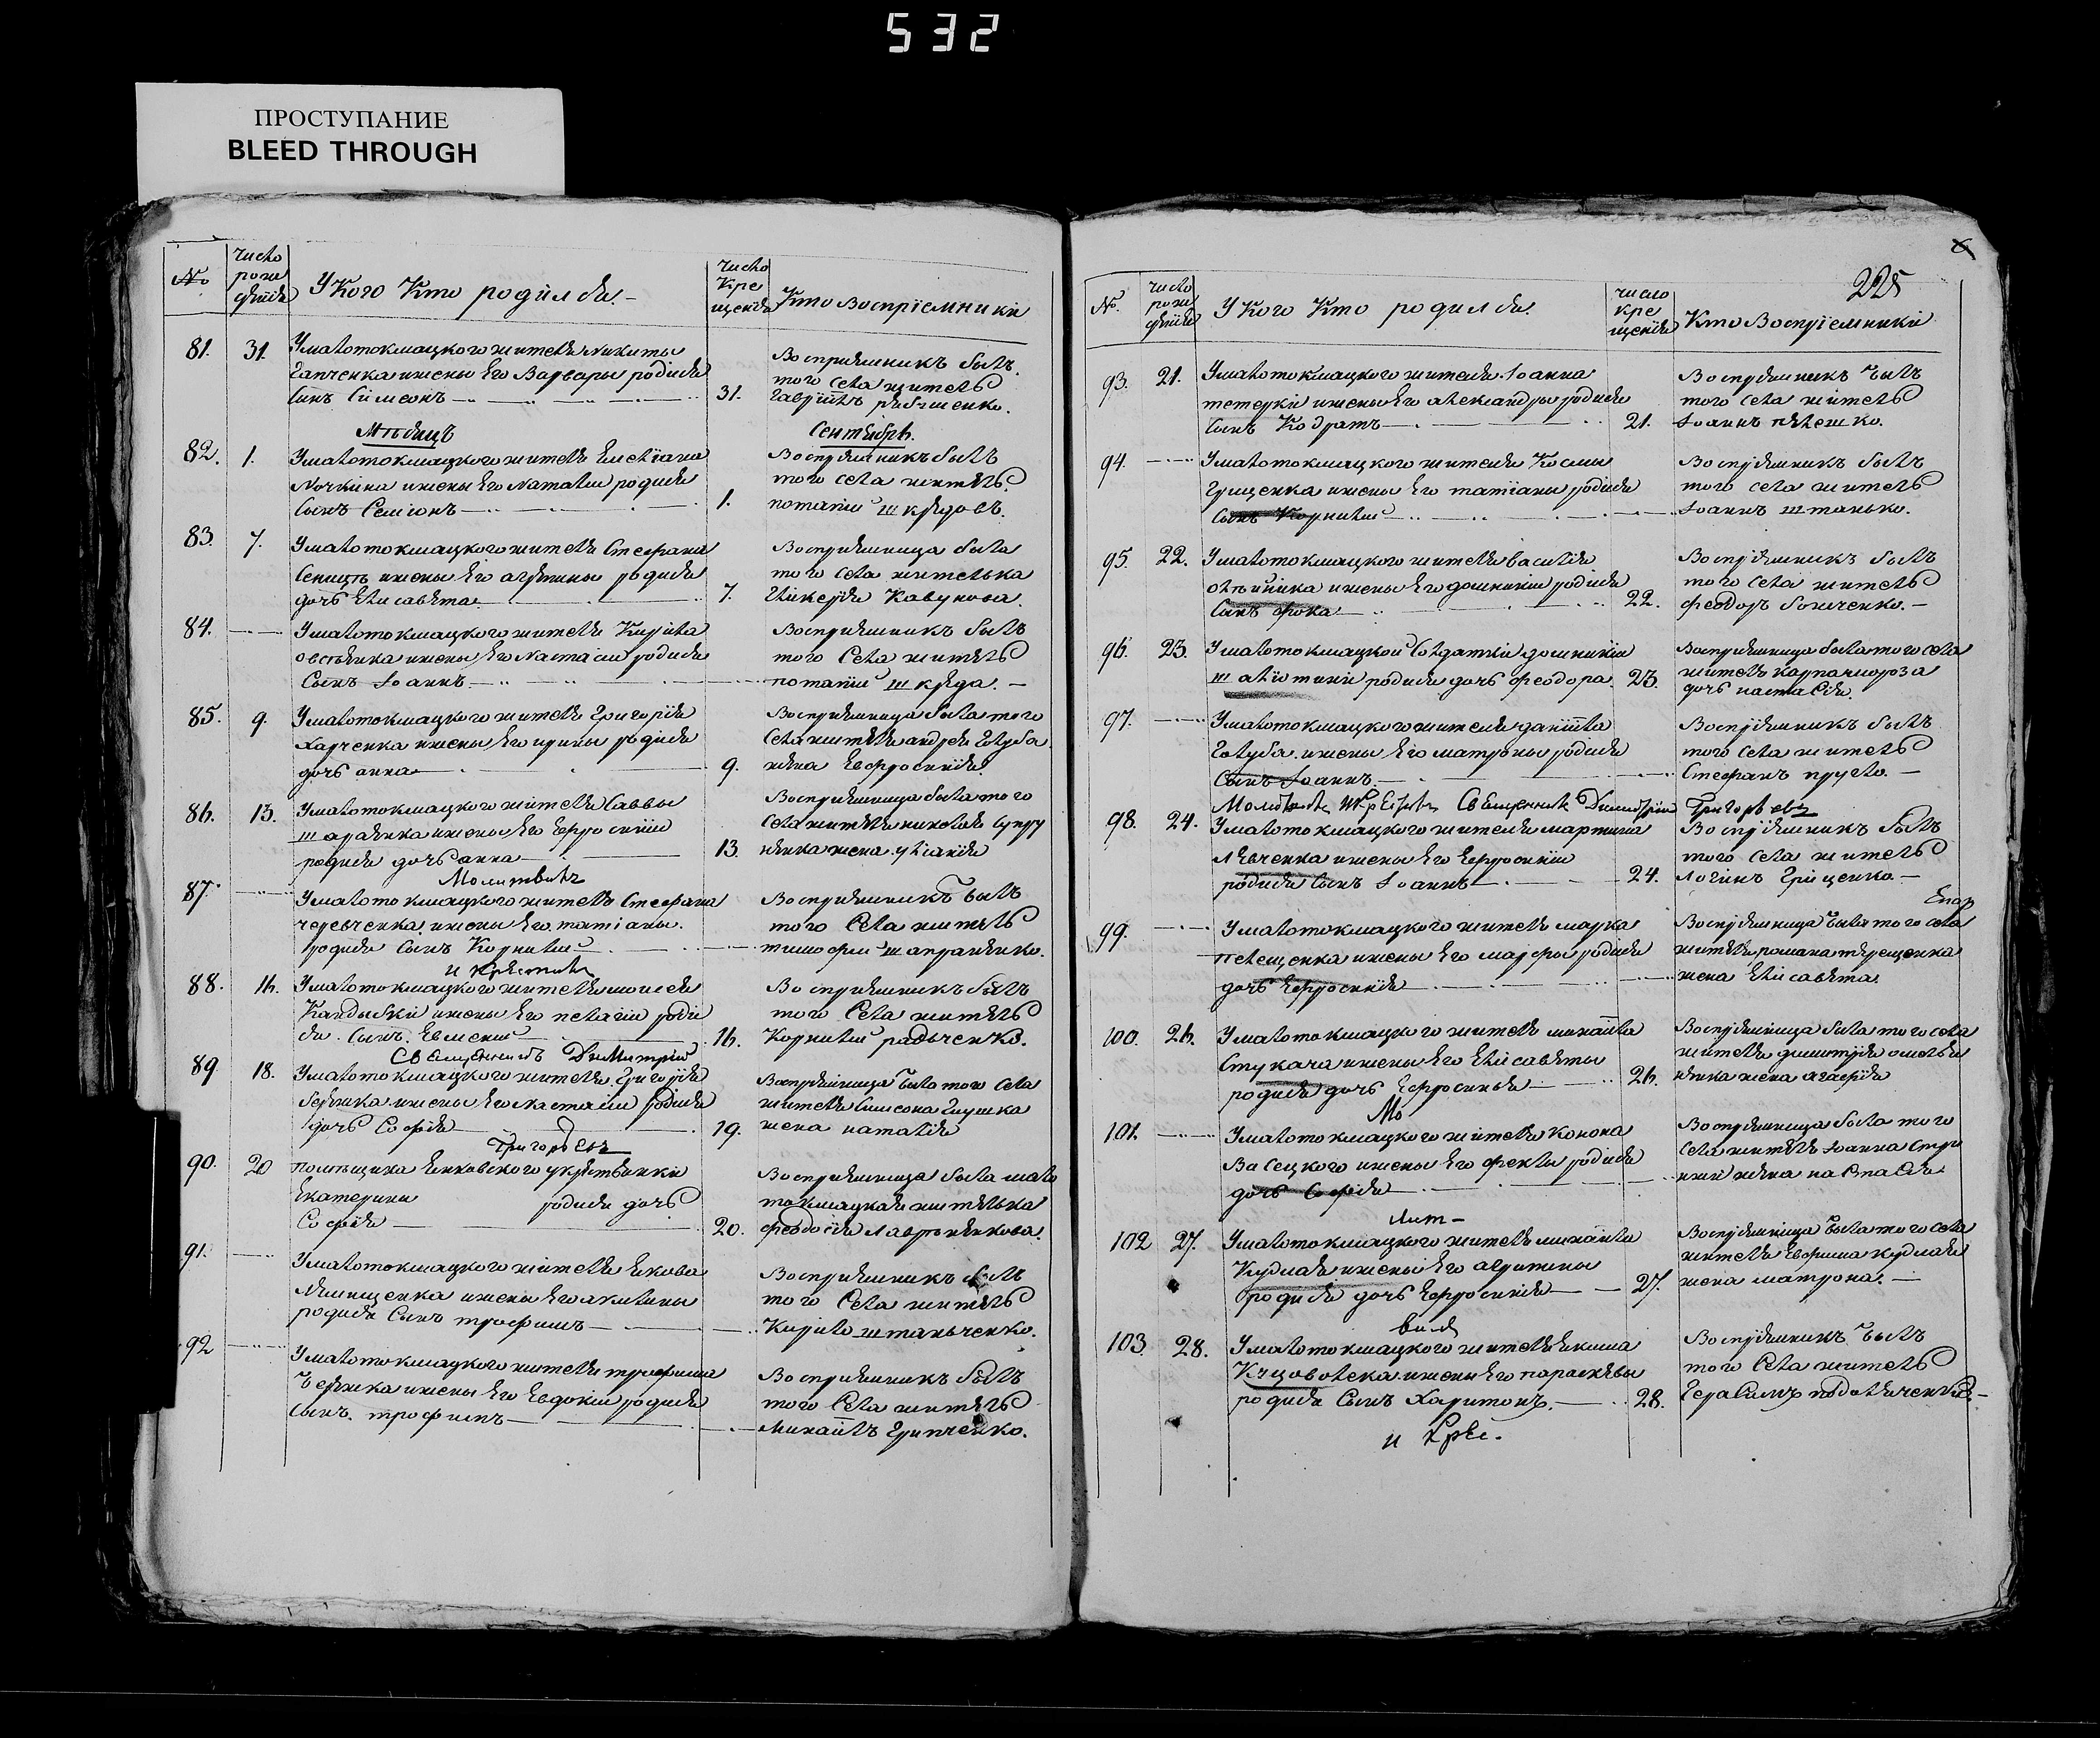 532
ПРОСТУПАНИЕ
BLEED THROUGH
№
число рож дѣнія
У Кого Кто родился.
число Кре щенія
Кто Восприемники
81. 31.
Умалотокмацкого жителя Никиты
Гапченка и жены Его Варвары родился
Сынъ Симеонъ
31.
Восприемникъ былъ
того села житель
Гавріилъ
Мѣсяцъ Сентябрь.
82. 1.
Умалотокмацкого жителя Емелiана
Ночкина и жены Его Наталіи родился
Сынъ Семіонъ
1.
Восприемникъ былъ
того села житель
потапій шкредовъ.
83. 7.
Умалотокмацкого жителя Стефана
и жены Его агрипины родися
дочь Елисавѣта
7.
Восприемница была
того села жителька
Гликерія Кавунова.
84.
Умалотокмацкого жителя Кирила
овсѣенка и жены Его Настасіи родися
Сынъ Іоаннъ
Восприемникъ былъ
того Села житель
потапій шкреда.
85. 9.
Умалотокмацкого жителя Григорія
Харченка и жены Его ирины родися
дочь анна
9.
Восприемница была того
Села жителя андрея Голуба
жена Евфросинія.
86. 13.
Умалотокмацкого жителя Саввы
и жены Его Ефросиніи
родися дочь анна
13.
Восприемница была того
Села жителя николая Супру
ненка жена уліанія
Молитвилъ
87.
Умалотокмацкого жителя Стефана
и жены Его татіаны
родися Сынъ Корнилій
Восприемникъ былъ
того Села житель
тимофей шапраненко.
и Крестилъ
88. 16.
Умалотокмацкого жителя моисея
Кандыбки и жены Его пелагіи роди
ся Сынъ Евмений
16.
Восприемникъ былъ
того Села житель
Корнилій радыченко.
Священникъ Димитрій
89. 18.
Умалотокмацкого жителя Григорія
и жены Его Настасіи родися
дочь Софія
19.
Восприемница была того Села
жителя Симеона Глушка
жена наталія
Григорьевъ
90. 20
помѣщика Янковского укрестьянки
Екатерины родися дочь
Софія
20.
Восприемница была мало
токмацкая жителька
феодосія Лавроненкова.
91.
Умалотокмацкого жителя Якова
и жены Его акилины
родися Сынъ трофимъ
Восприемникъ былъ
того Села житель
Кирило штанченко.
92
Умалотокмацкого жителя трофима
и жены Его Евдокіи родися
Сынъ трофимъ
Восприемникъ былъ
того Села житель
Михаилъ Грипченко.
225
№.
число рож дѣнія
У Кого Кто родился
число кре щенія
Кто Восприемники
93. 21.
Умалотокмацкого жителя Іоанна
тетерки и жены Его александры родися
Сынъ Кодратъ
21.
Восприемникъ былъ
того Села житель
Іоаннъ пелешко.
94.
Умалотокмацкого жителя Космы
Грищенка и жены Его татіаны родися
Сынъ Корнилій
Восприемникъ былъ
того Села житель
Іоаннъ штанько.
95. 22.
Умалотокмацкого жителя василія
олѣйника и жены Его домникіи родися
Сынъ фока
22.
Восприемникъ былъ
того Села житель
феодоръ
96. 23.
Умалотокмацкой Солдатки домникіи
родися дочь феодора
23.
Восприемница была того села
жителя
дочь настасія.
97.
Умалотокмацкого жителя даніила
Голуба и жены Его матроны родися
Сынъ Іоаннъ
Восприемникъ былъ
того Села житель
Стефанъ
Молитвилъ и Крестилъ Священникъ Димитрій Григорьевъ
98. 24.
Умалотокмацкого жителя мартина
Левченка и жены Его Ефросиніи
родися Сынъ Іоаннъ
24.
Восприемникъ былъ
того Села житель
Логинъ Грищенко.
99.
Умалотокмацкого жителя марка
пелещенка и жены Его марфы родися
дочь Ефросинія
Восприемница была того села
жителя романа терещенка
жена Елисавѣта.
100. 26.
Умалотокмацкого жителя михаила
Стукача и жены Его Елисавѣты
родися дочь Ефросинія
26.
Восприемница была того села
жителя димитрія омелья
ненка жена агафія
Мо
101.
Умалотокмацкого жителя Конона
Васецкого и жены Его феклы родися
дочь Софія
Восприемница была того
Села жителя Іоанна
жена настасія
лит-
102 27.
Умалотокмацкого жителя михаила
Кудлая и жены Его агрипины
родися дочь Ефросинія
27.
Восприемница была того села
жителя Евфима кудлая
жена матрона.
вилъ
103. 28.
Умалотокмацкого жителя Екима
Куцоволока и жены Его параскевы
родися Сынъ Харитонъ.
28.
Восприемникъ былъ
того Села житель
Герасимъ
и Крес.